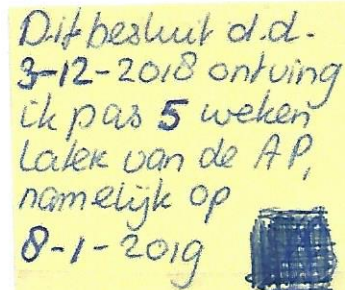 Dit besluit d.d.
3-12-2018 ontving
ik pas 5 weken
later van de AP,
namelijk op
8-1-2019